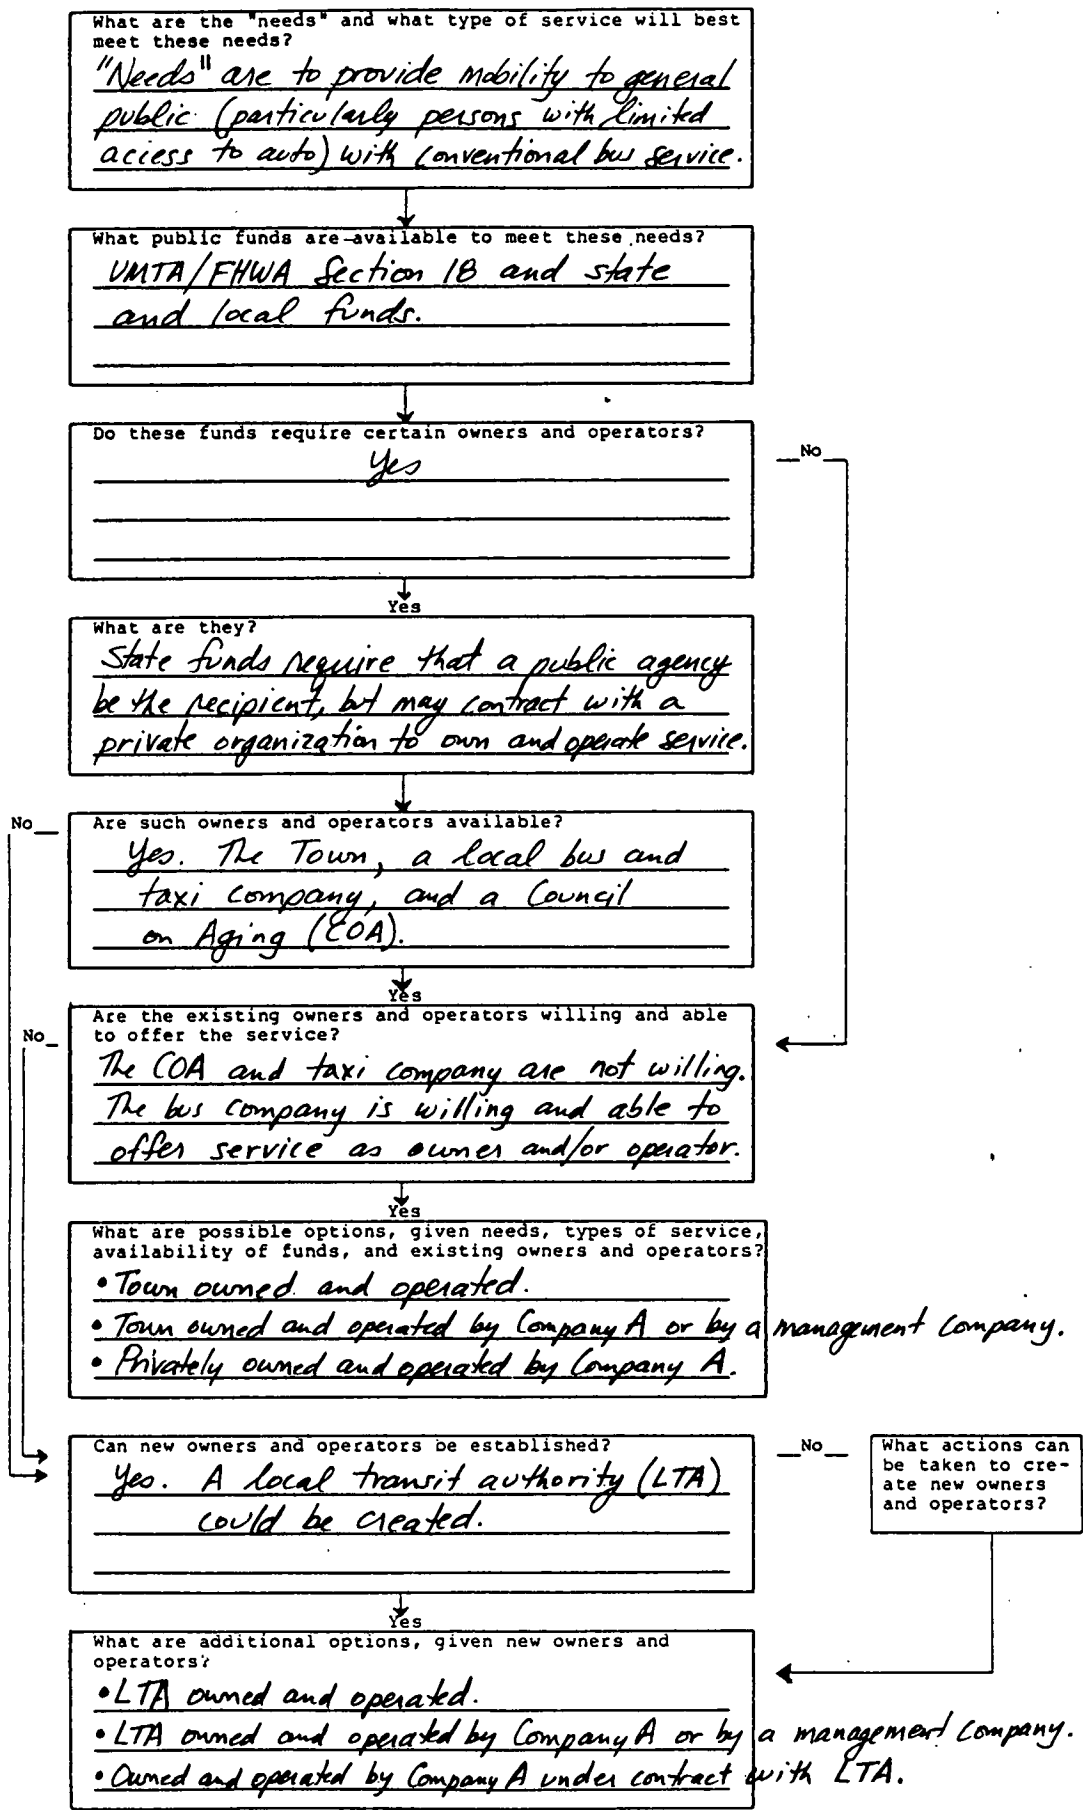 What are the "needs" and what type of service will best
meet these needs?
"Needs" are to provide mobility to general
public (particularly persons with limited
access to auto) with conventional bus service.
What public funds are available to meet these needs?
UMTA/FHWA Section 18 and state
and local funds.
Do these funds require certain owners and operators?
Yes
No
Yes
What are they?
State funds require that a public agency
be the recipient, but may contract with a
private organization to own and operate service.
No
Are such owners and operators available?
Yes. The Town, a local bus and
taxi company, and a Council
on Aging (COA).
Yes
No
Are the existing owners and operators willing and able
to offer the service?
The COA and taxi company are not willing.
The bus company is willing and able to
offer service as owner and/or operator.
Yes
What are possible options, given needs, types of service,
availability of funds, and existing owners and operators?
• Town owned and operated.
• Town owned and operated by Company A or by a management company.
• Privately owned and operated by Company A.
Can new owners and operators be established?
Yes. A local transit authority (LTA)
could be created.
No
What actions can
be taken to cre-
ate new owners
and operators?
Yes
What are additional options, given new owners and
operators?
• LTA owned and operated.
• LTA owned and operated by Company A or by a management company.
• Owned and operated by Company A under contract with LTA.